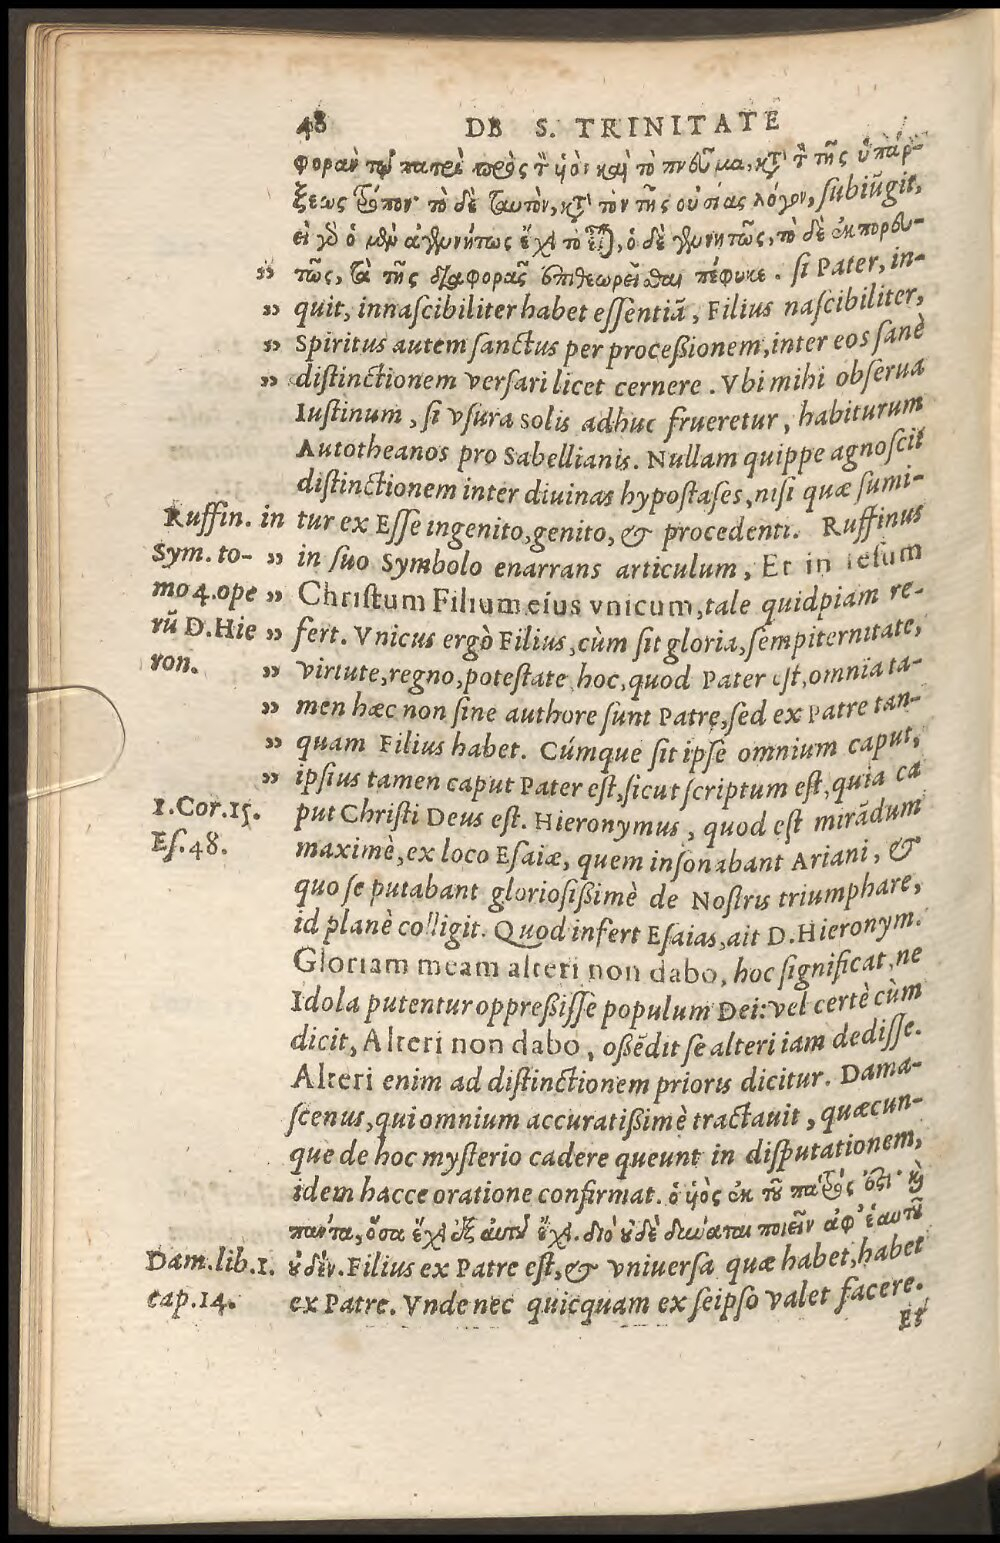 48 DE S. TRINITATE
φορὰν τῷ πατρὶ πρὸς τ̀ ὑὸν καὶ τὸ πνεῦμα, κτ̀ τ̀ τῆς ὑπάρ-
ξεως τρόπον· τὸ δὲ ταυτὸν, κτ̀ τὸν τῆς οὐσίας λόγον, subiũgit,
εἰ γδ ὁ μὲν ἀγεννήτως ἔχει τὸ εἶ), ὁ δὲ γεννητῶς, τὸ δὲ ἐκπορευ-
„ τῶς, τὰ τῆς διαφορᾶς ἐπιθεωρεῖσθαι πέφυκε. si Pater, in-
„ quit, innascibiliter habet essentiã, Filius nascibiliter,
„ Spiritus autem sanctus per processionem, inter eos sanè
„ distinctionem versari licet cernere. Vbi mihi obserua
Iustinum, si vsura solis adhuc frueretur, habiturum
Autotheanos pro Sabellianis. Nullam quippe agnoscit
distinctionem inter diuinas hypostases, nisi quæ sumi-
Ruffin. in tur ex Esse ingenito, genito, & procedenti. Ruffinus
Sym. to- „ in suo Symbolo enarrans articulum, Et in Iesum
mo 4. ope „ Christum Filium eius vnicum, tale quidpiam re-
rũ D. Hie „ fert. Vnicus ergò Filius, cùm sit gloria, sempiternitate,
ron. „ virtute, regno, potestate hoc, quod Pater est, omnia ta-
„ men hæc non sine authore sunt Patre, sed ex Patre tan-
„ quam Filius habet. Cúmque sit ipse omnium caput,
„ ipsius tamen caput Pater est, sicut scriptum est, quia ca
1. Cor. 15. put Christi Deus est. Hieronymus, quod est mirãdum
Es. 48. maximè, ex loco Esaiæ, quem insonabant Ariani, &
quo se putabant gloriosissimè de Nostris triumphare,
id planè colligit. Quod infert Esaias, ait D. Hieronym.
Gloriam meam alteri non dabo, hoc significat, ne
Idola putentur oppressisse populum Dei: vel certè cùm
dicit, Alteri non dabo, ostẽdit se alteri iam dedisse.
Alteri enim ad distinctionem prioris dicitur. Dama-
scenus, qui omnium accuratissimè tractauit, quæcun-
que de hoc mysterio cadere queunt in disputationem,
idem hacce oratione confirmat. ὁ ὑὸς ἐκ τοῦ πατρός ὅστι· καὶ
παντα, ὅσα ἔχει ἐξ αὐτοῦ ἔχει. διὸ οὐδὲ δύναται ποιεῖν ἀφ’ ἑαυτοῦ
Dam. lib. 1. οὐδέν. Filius ex Patre est, & vniuersa quæ habet, habet
cap. 14. ex Patre. Vnde nec quicquam ex seipso valet facere.
Et